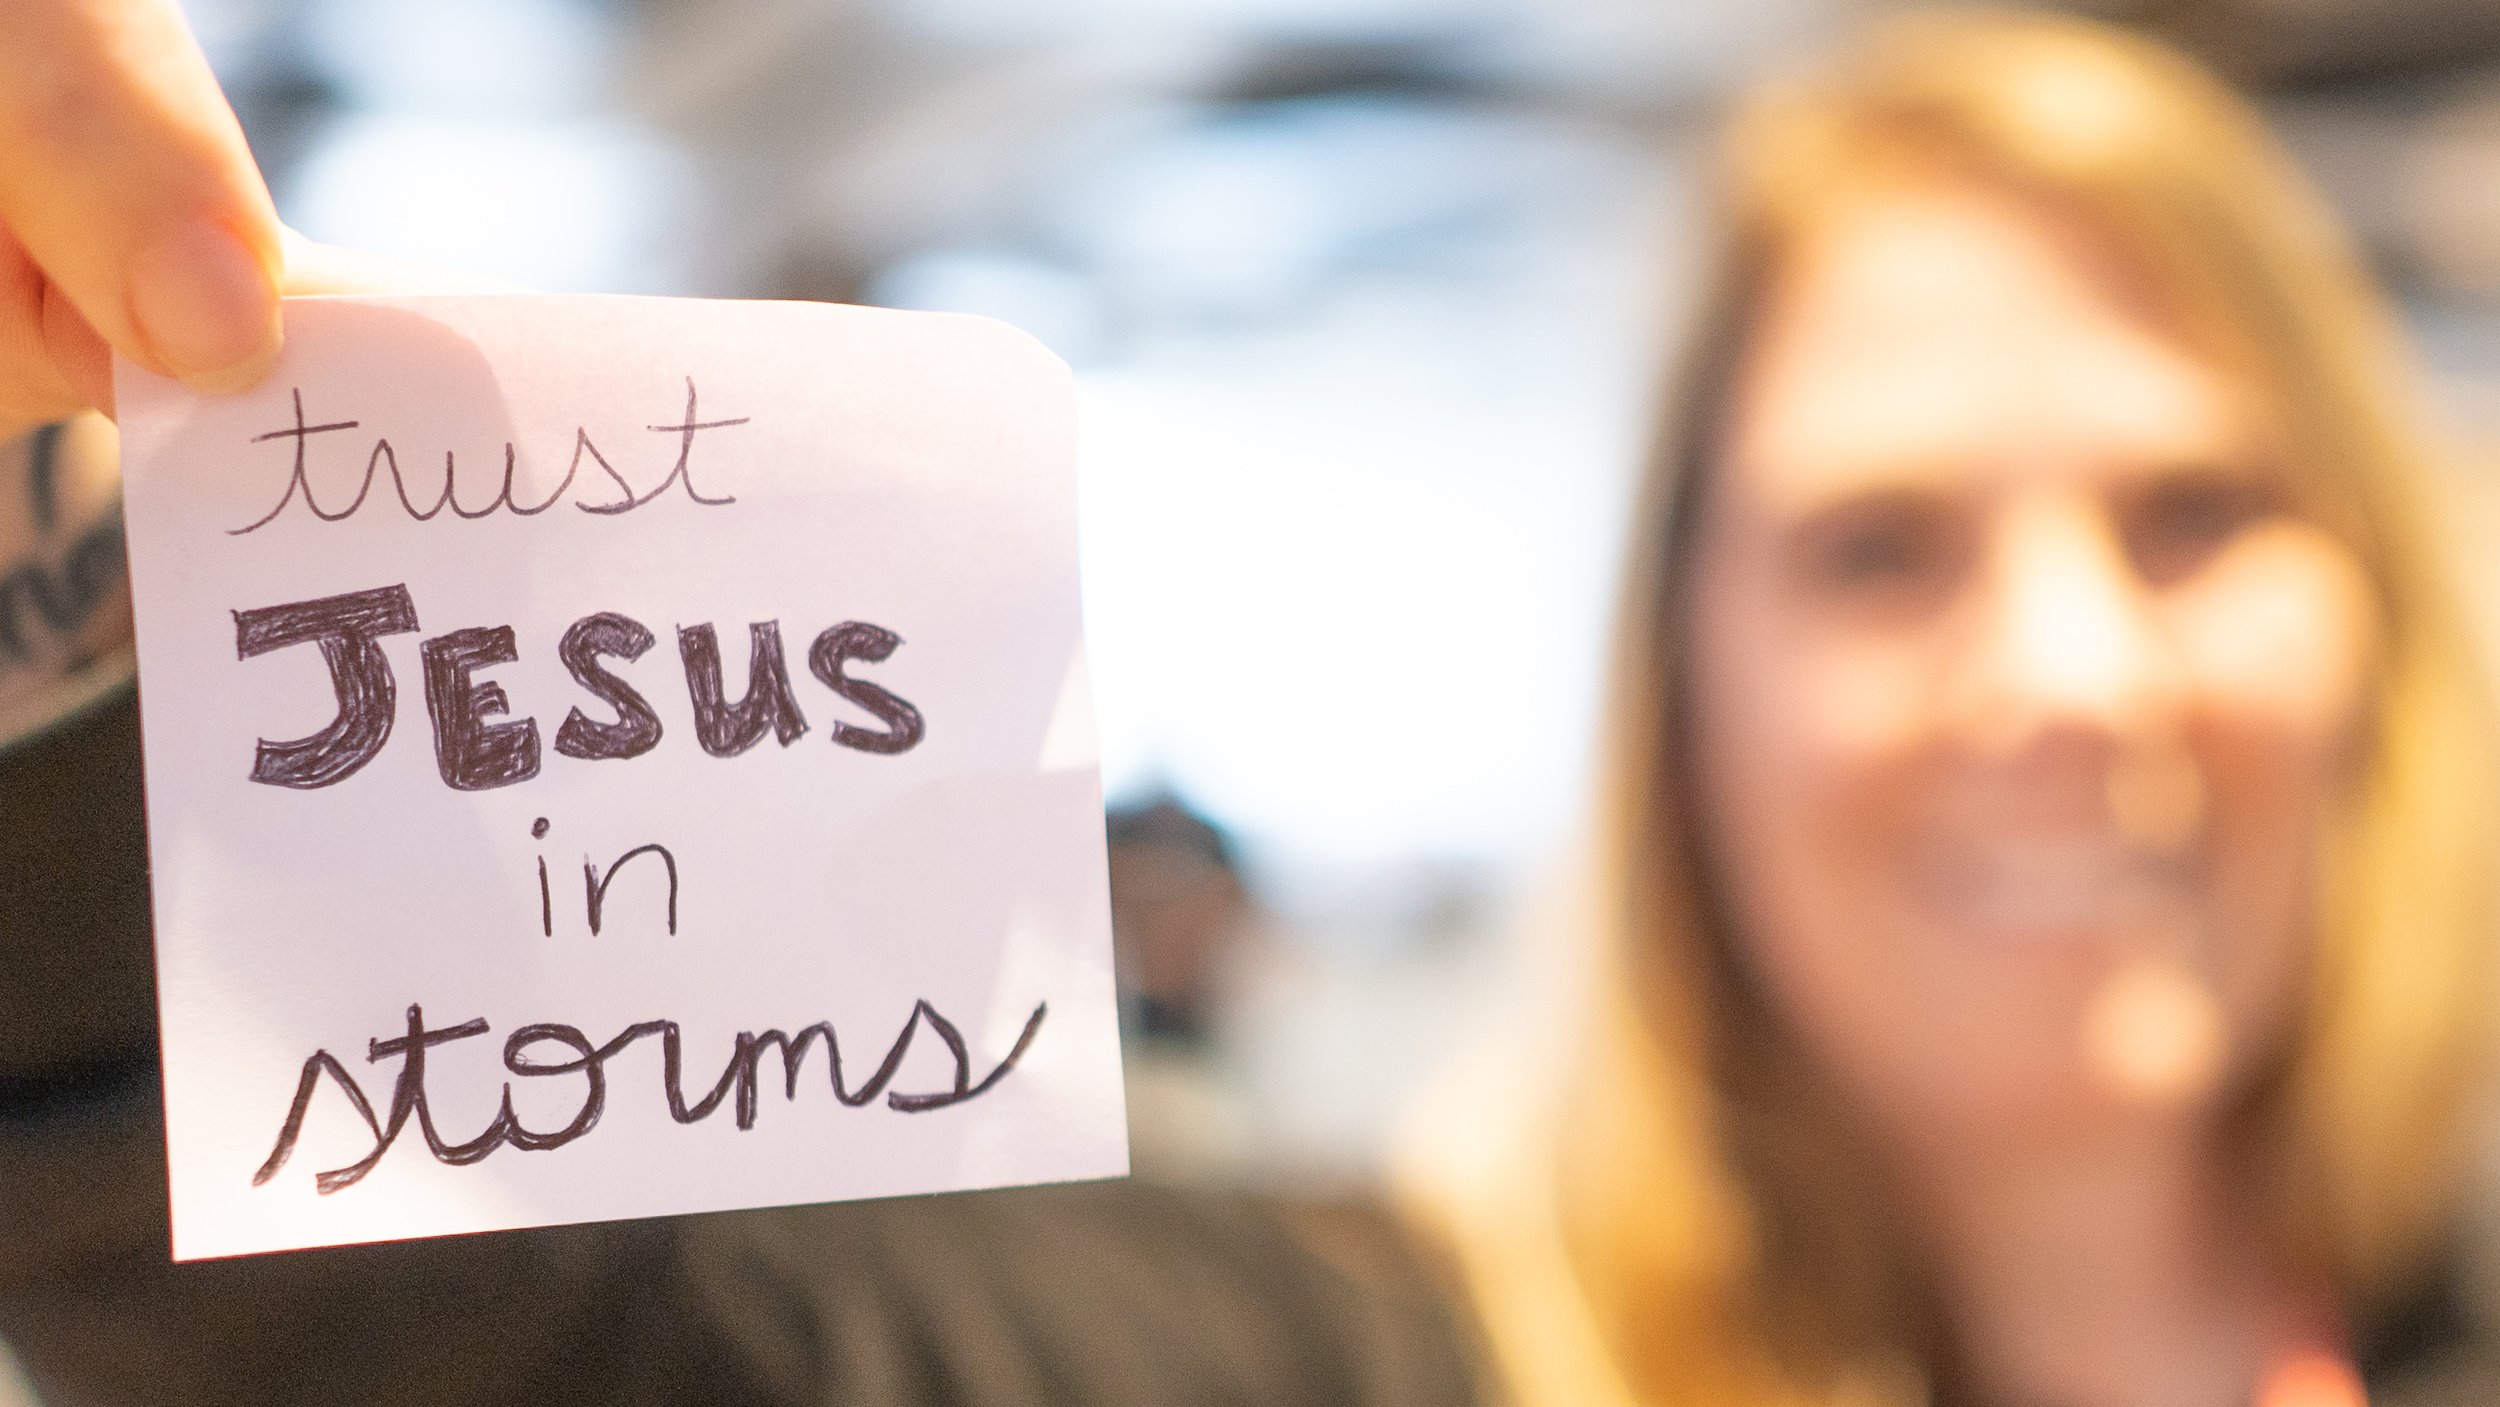 trust
JESUS
in
storms